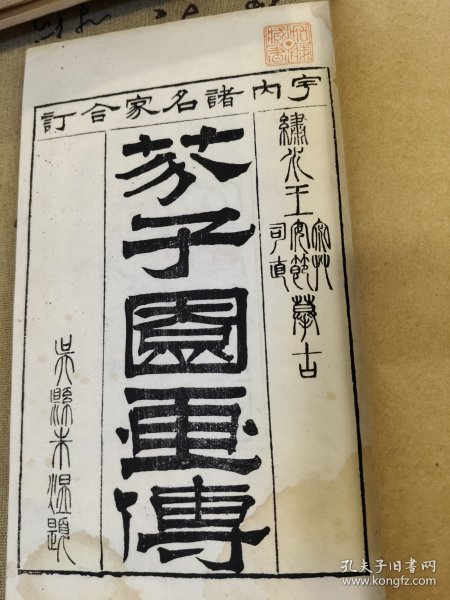 宇內諸名家合訂
繡水王
宓草
安節
司直
摹古
芥子園畫傳
吳縣朱湜題
孔夫子旧书网
www.kongfz.com